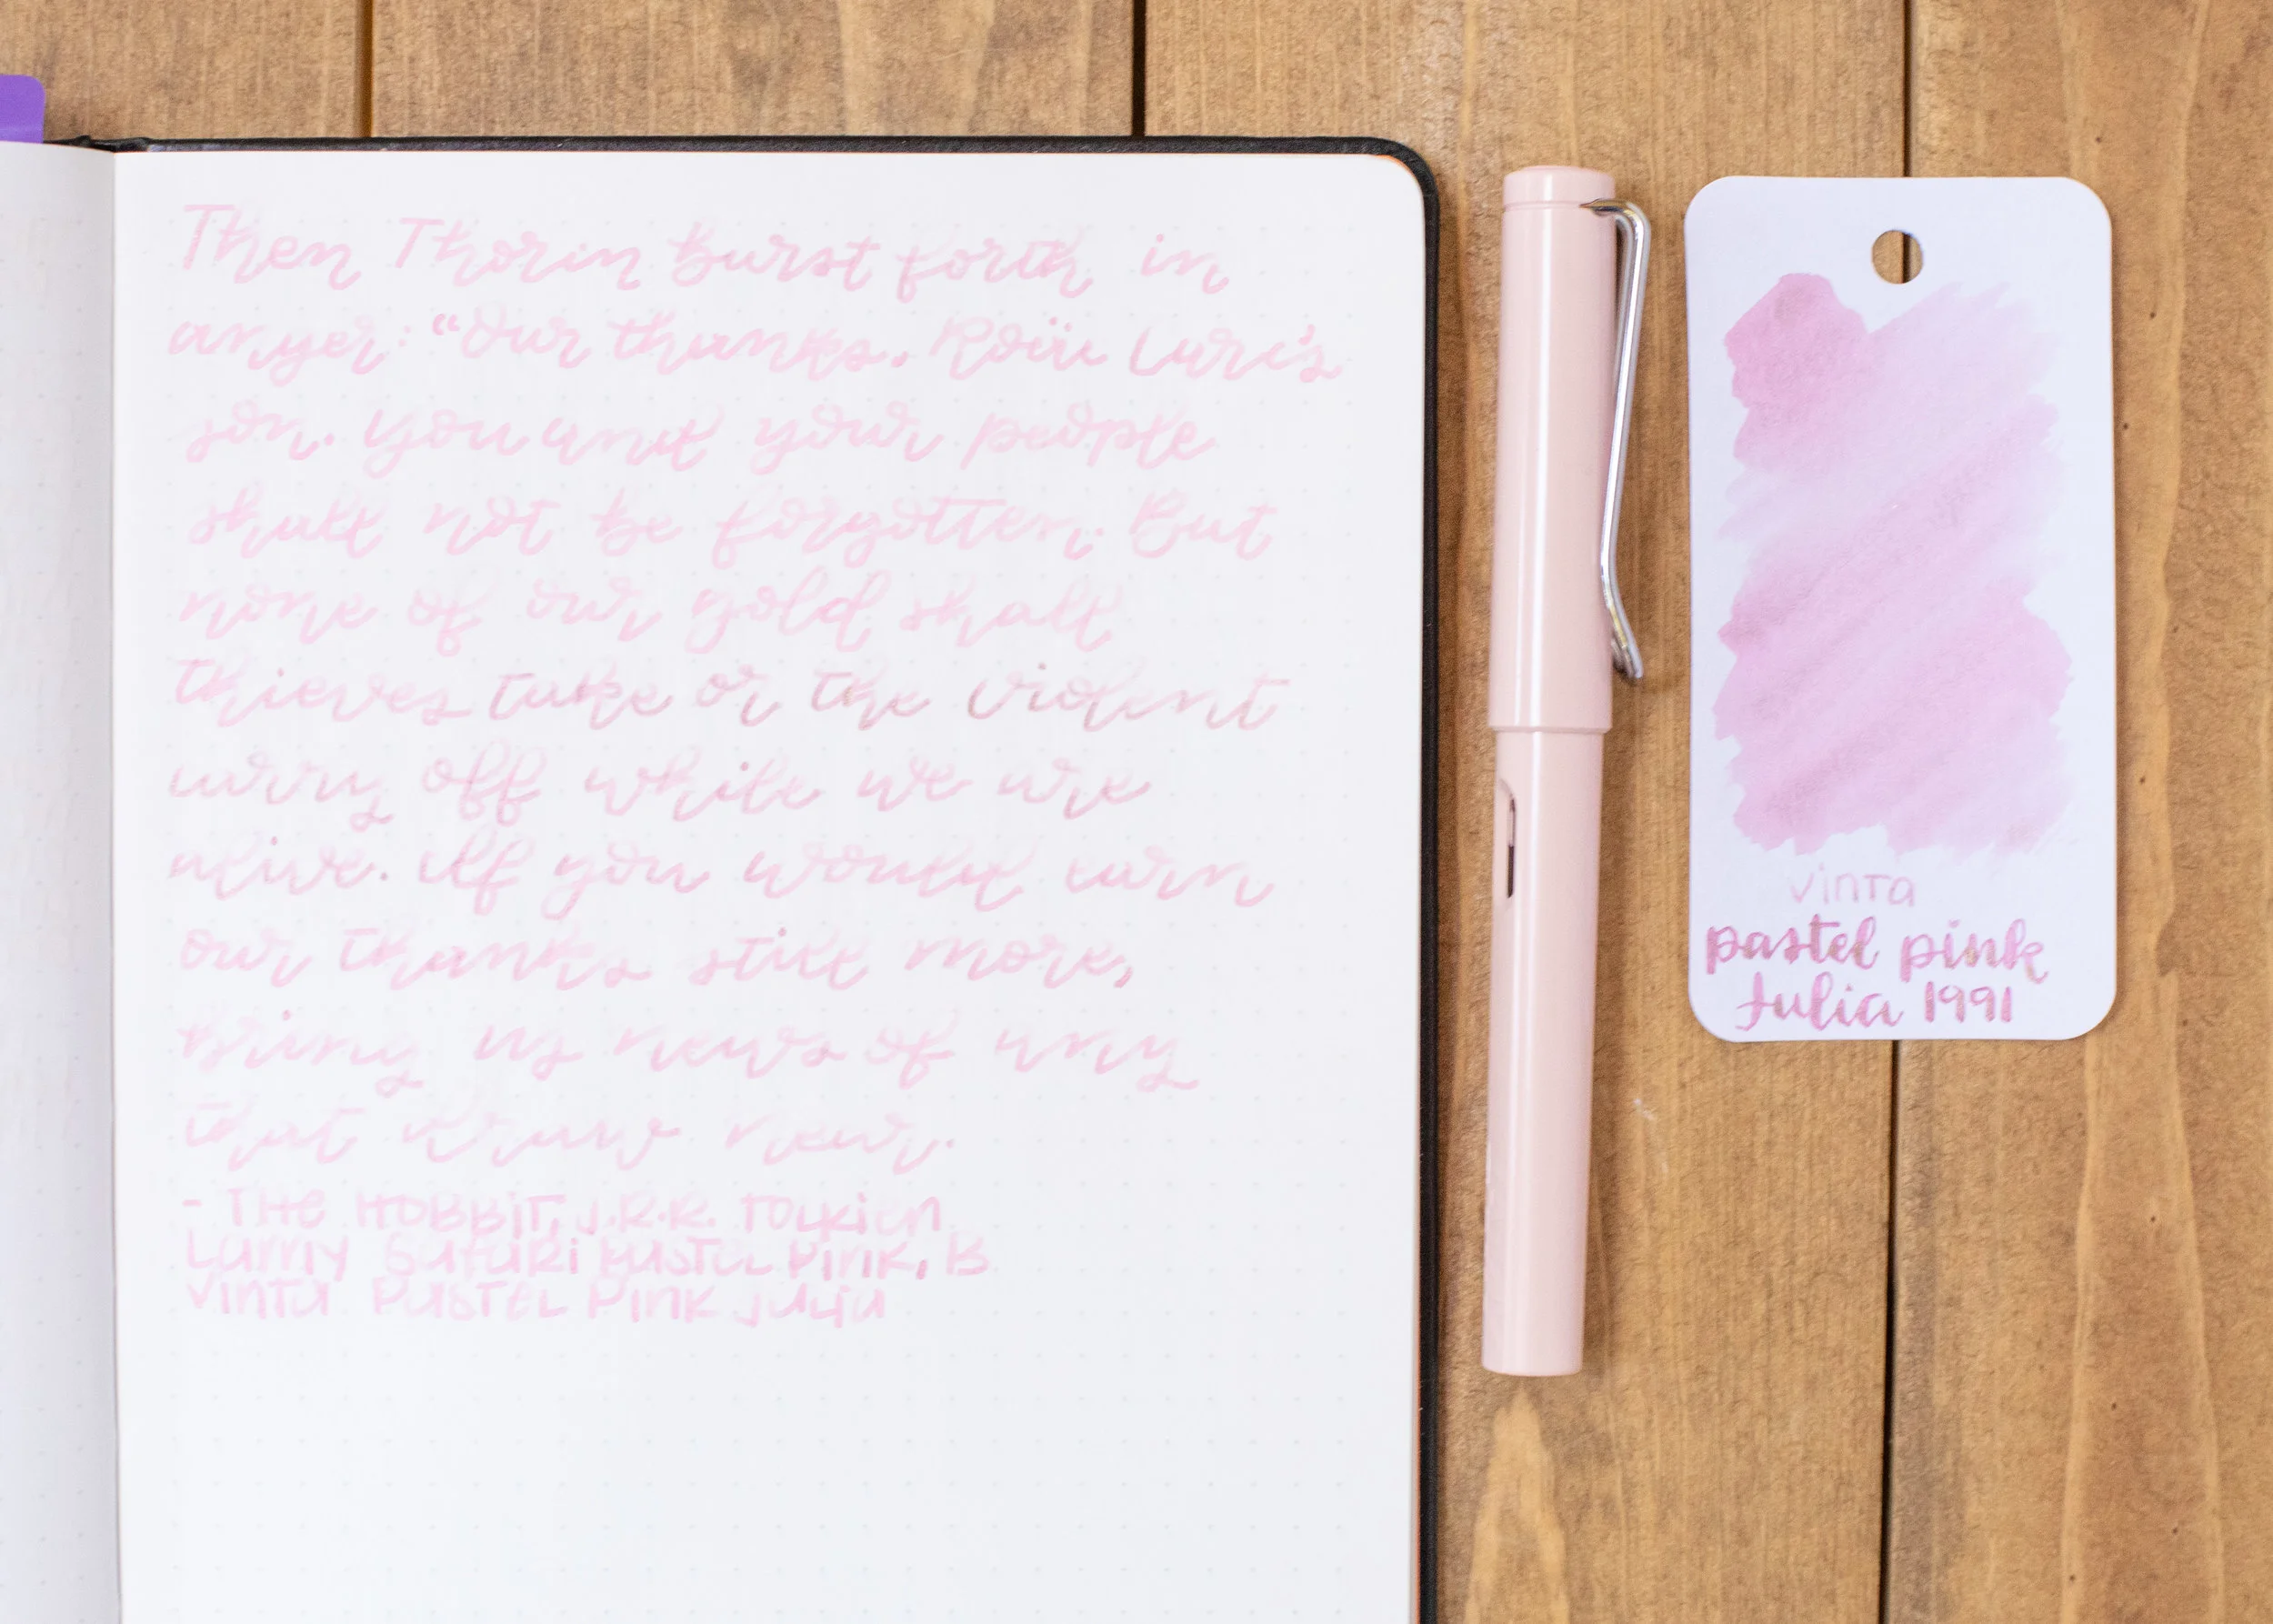 Then Thorin burst forth in
anger: "Our thanks, Roäc Carc's
son. You and your people
shall not be forgotten. But
none of our gold shall
thieves take or the violent
carry off while we are
alive. If you would earn
our thanks still more,
bring us news of any
that draw near.
- THE HOBBIT, J.R.R. TOLKIEN
Lamy Safari Pastel Pink, B
Vinta Pastel Pink Julia
vinta
pastel pink
Julia 1991